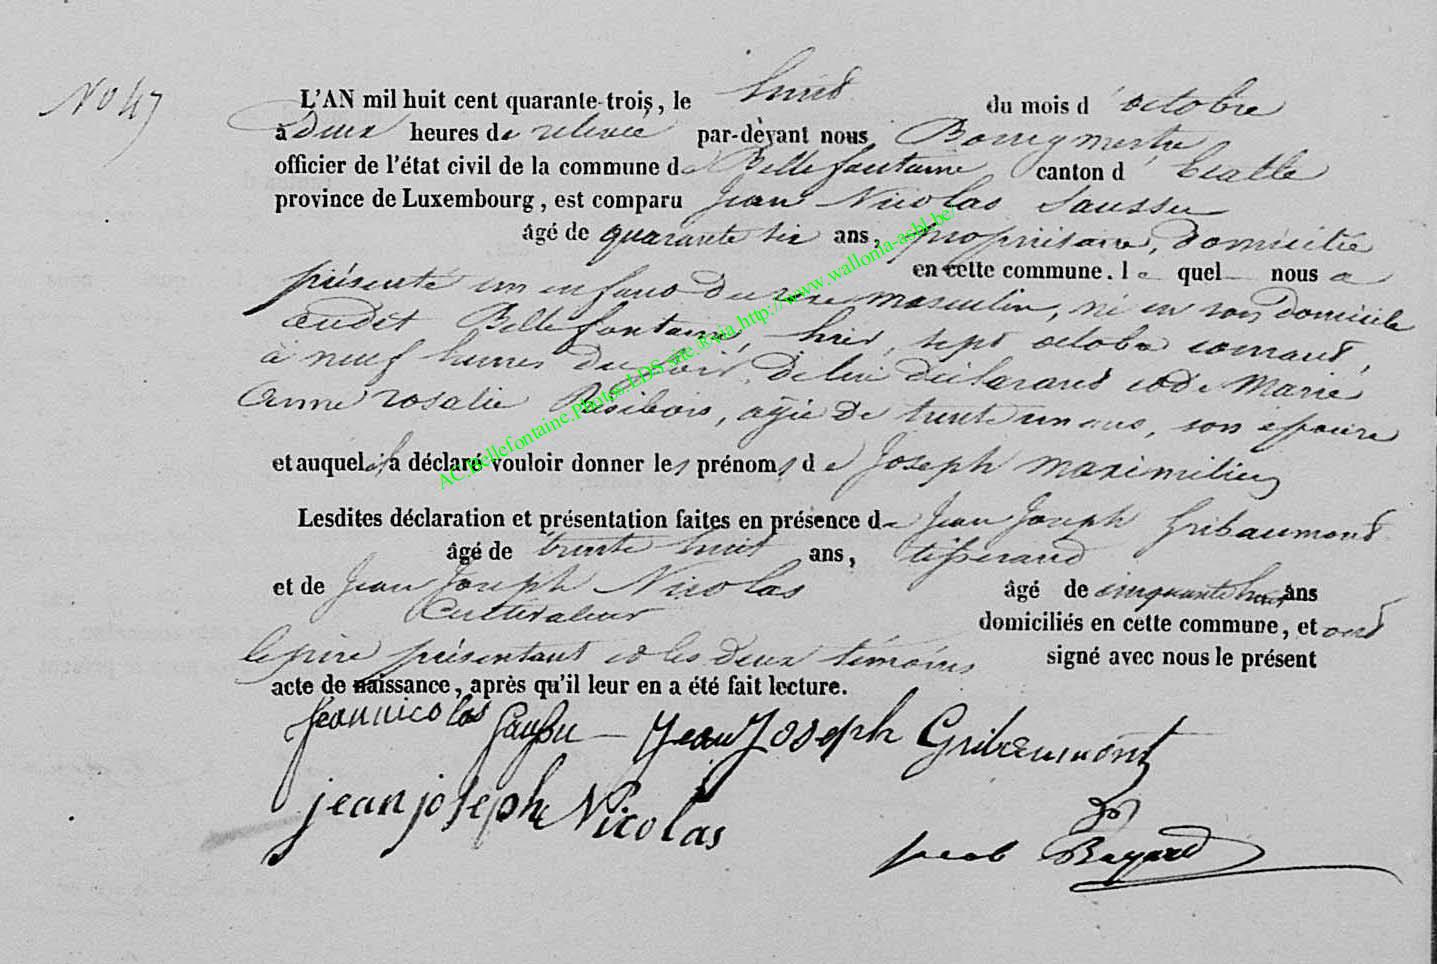 No 47
L'AN mil huit cent quarante-trois, le huit du mois d'octobre
à deux heures de relevée par-devant nous Bourgmestre
officier de l'état civil de la commune de Bellefontaine canton d'
province de Luxembourg, est comparu Jean Nicolas Saussu
âgé de quarante six ans, propriétaire, domicilié
en cette commune. le quel nous a
présenté un enfant du sexe masculin, né en son domicile
audit Bellefontaine, hier, sept octobre courant
à neuf heures du soir, de lui déclarant et de Marie
Anne rosalie Résibois, agée de trente un ans, son épouse
et auquel il a déclaré vouloir donner les prénoms de Joseph maximilien
Lesdites déclaration et présentation faites en présence de Jean Joseph Gribaumont
âgé de trente huit ans, tisserand
et de Jean Joseph Nicolas âgé de cinquante huit ans
Cultivateur domiciliés en cette commune, et ont
le père présentant et les deux témoins signé avec nous le présent
acte de naissance, après qu'il leur en a été fait lecture.
jeannicolas Saussu Jean Joseph Gribaumont
jean joseph Nicolas
Bayard
AC.Bellefontaine.Photos.LDS site.®via http://www.wallonia-asbl.be/